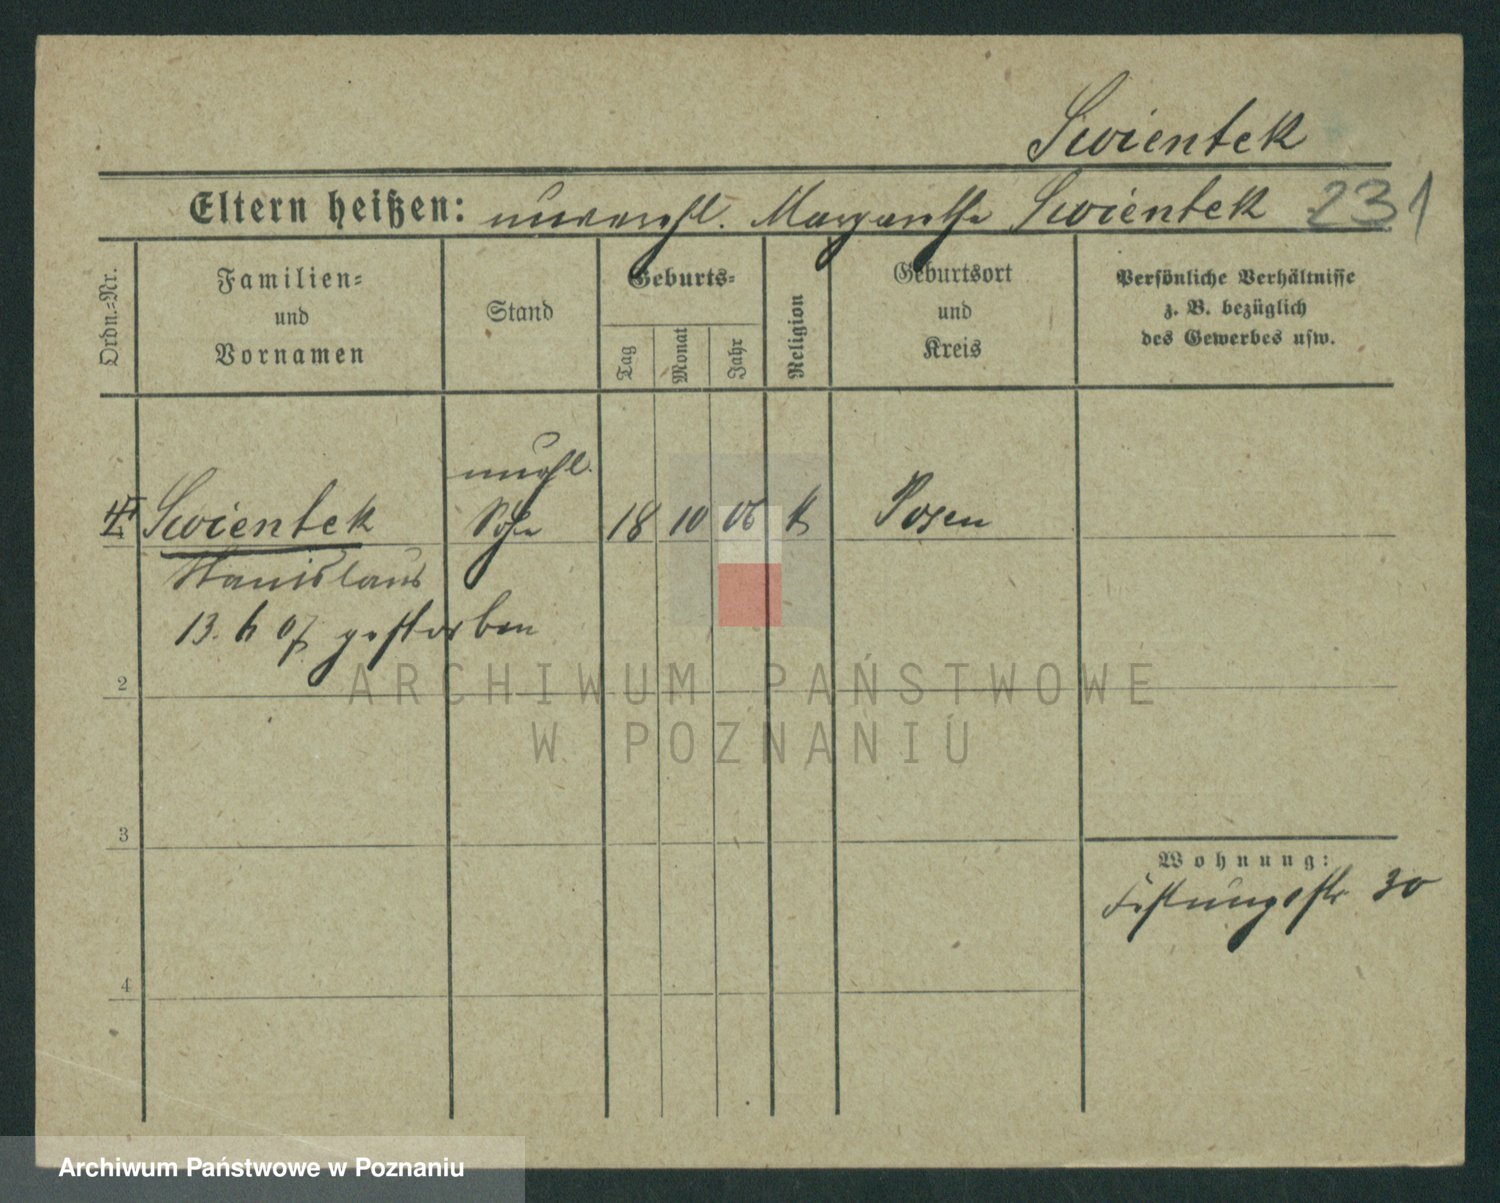 Swientek
Eltern heißen: unverehl. Margarethe Swientek 231
Ordn.-Nr.
Familien-
und
Vornamen
Stand
Geburts-
Tag
Monat
Jahr
Religion
Geburtsort
und
Kreis
Persönliche Verhältnisse
z. B. bezüglich
des Gewerbes usw.
unehl.
Swientek Sohn 18 10 06 k Posen
Stanislaus
13. 6 07 gestorben
2
ARCHIWUM PAŃSTWOWE
W POZNANIU
3
Wohnung:
Festungsstr 30
4
Archiwum Państwowe w Poznaniu